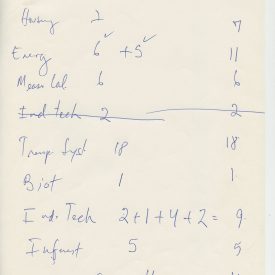 Housing 7 7
Energy 6 + 5 11
Meas Cal 6 6
Ind tech 2 2
Transp Syst 18 18
Biot 1 1
Ind. Tech 2+1+4+2= 9
Infrast 5 5